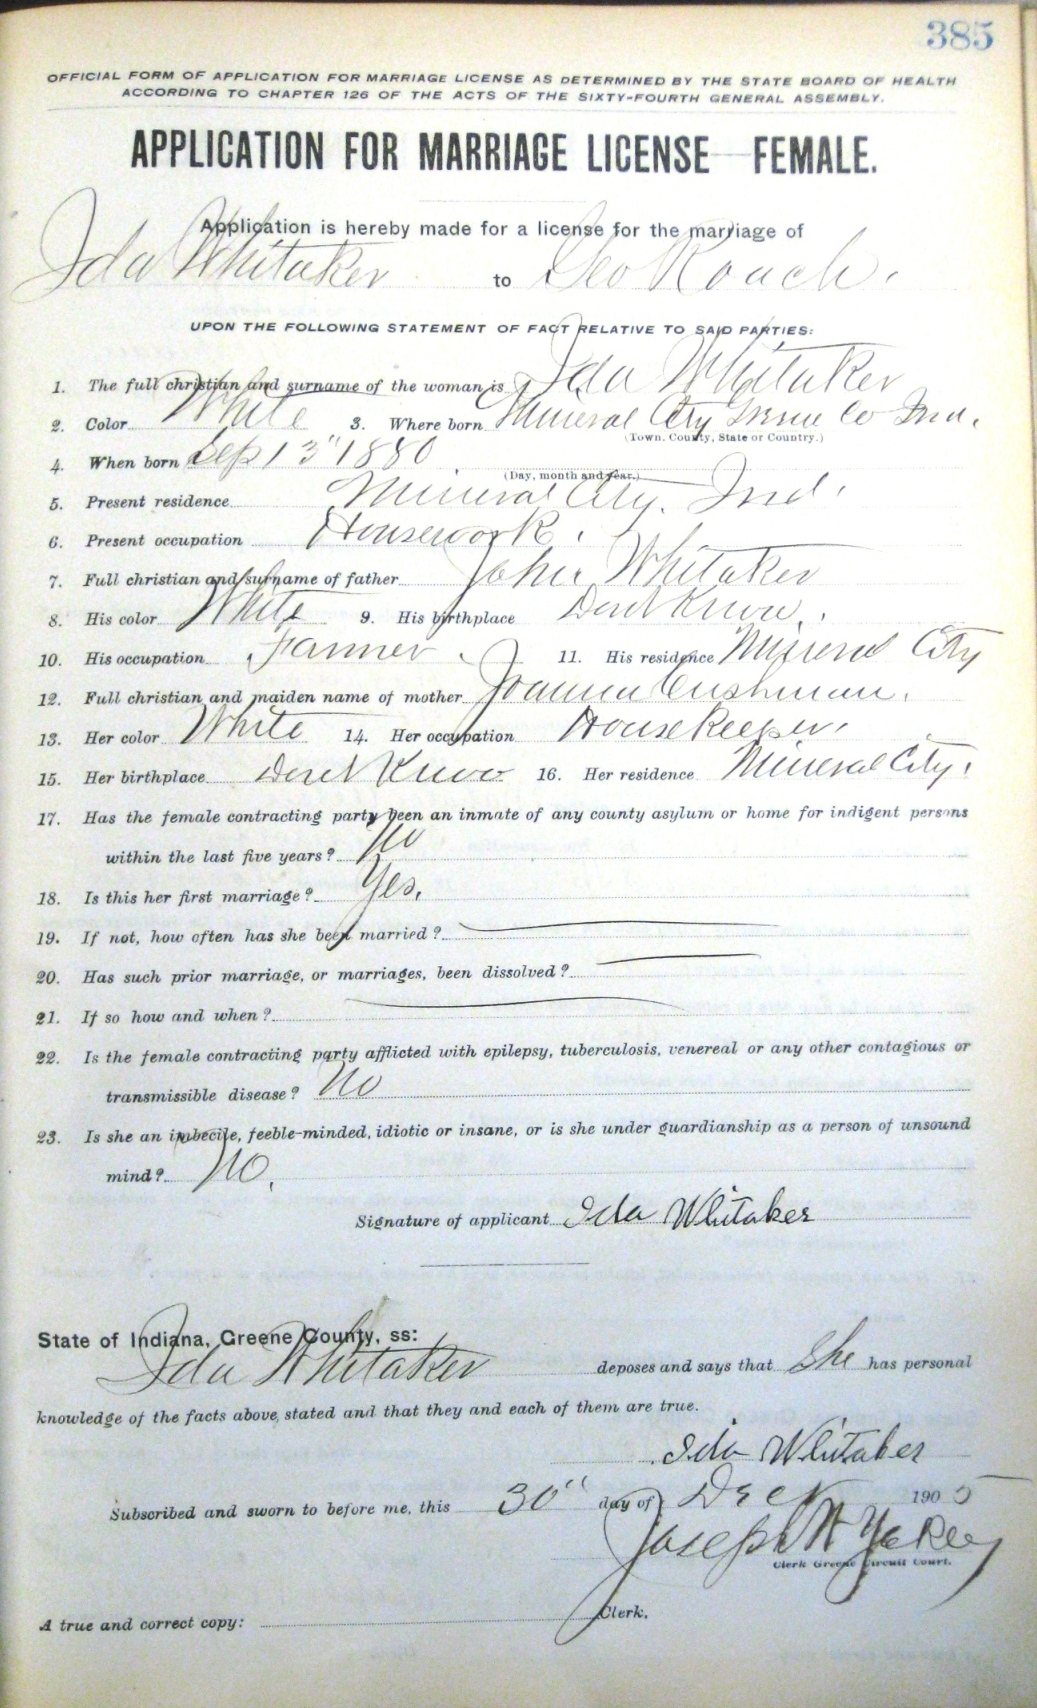 385
OFFICIAL FORM OF APPLICATION FOR MARRIAGE LICENSE AS DETERMINED BY THE STATE BOARD OF HEALTH
ACCORDING TO CHAPTER 126 OF THE ACTS OF THE SIXTY-FOURTH GENERAL ASSEMBLY.
APPLICATION FOR MARRIAGE LICENSE FEMALE.
Application is hereby made for a license for the marriage of
Ida Whitaker to Geo Roach.
UPON THE FOLLOWING STATEMENT OF FACT RELATIVE TO SAID PARTIES:
1. The full christian and surname of the woman is Ida Whitaker
2. Color White 3. Where born Mineral City Greene Co Ind.
(Town. County, State or Country.)
4. When born Sep 13" 1880
(Day, month and year.)
5. Present residence Mineral City. Ind.
6. Present occupation Housework.
7. Full christian and surname of father John Whitaker
8. His color White 9. His birthplace Dont Know.
10. His occupation Farmer. 11. His residence Mineral City
12. Full christian and maiden name of mother Joanna Cushman.
13. Her color White 14. Her occupation HouseKeeper.
15. Her birthplace Dont Know 16. Her residence Mineral City.
17. Has the female contracting party been an inmate of any county asylum or home for indigent persons
within the last five years? No
18. Is this her first marriage? Yes.
19. If not, how often has she been married?
20. Has such prior marriage, or marriages, been dissolved?
21. If so how and when?
22. Is the female contracting party afflicted with epilepsy, tuberculosis, venereal or any other contagious or
transmissible disease? No
23. Is she an imbecile, feeble-minded, idiotic or insane, or is she under guardianship as a person of unsound
mind? No.
Signature of applicant Ida Whitaker
State of Indiana, Greene County, ss:
Ida Whitaker deposes and says that She has personal
knowledge of the facts above stated and that they and each of them are true.
Ida Whitaker
Subscribed and sworn to before me, this 30" day of Dec 1905
Joseph W Yakey
Clerk Greene Circuit Court.
A true and correct copy: Clerk.